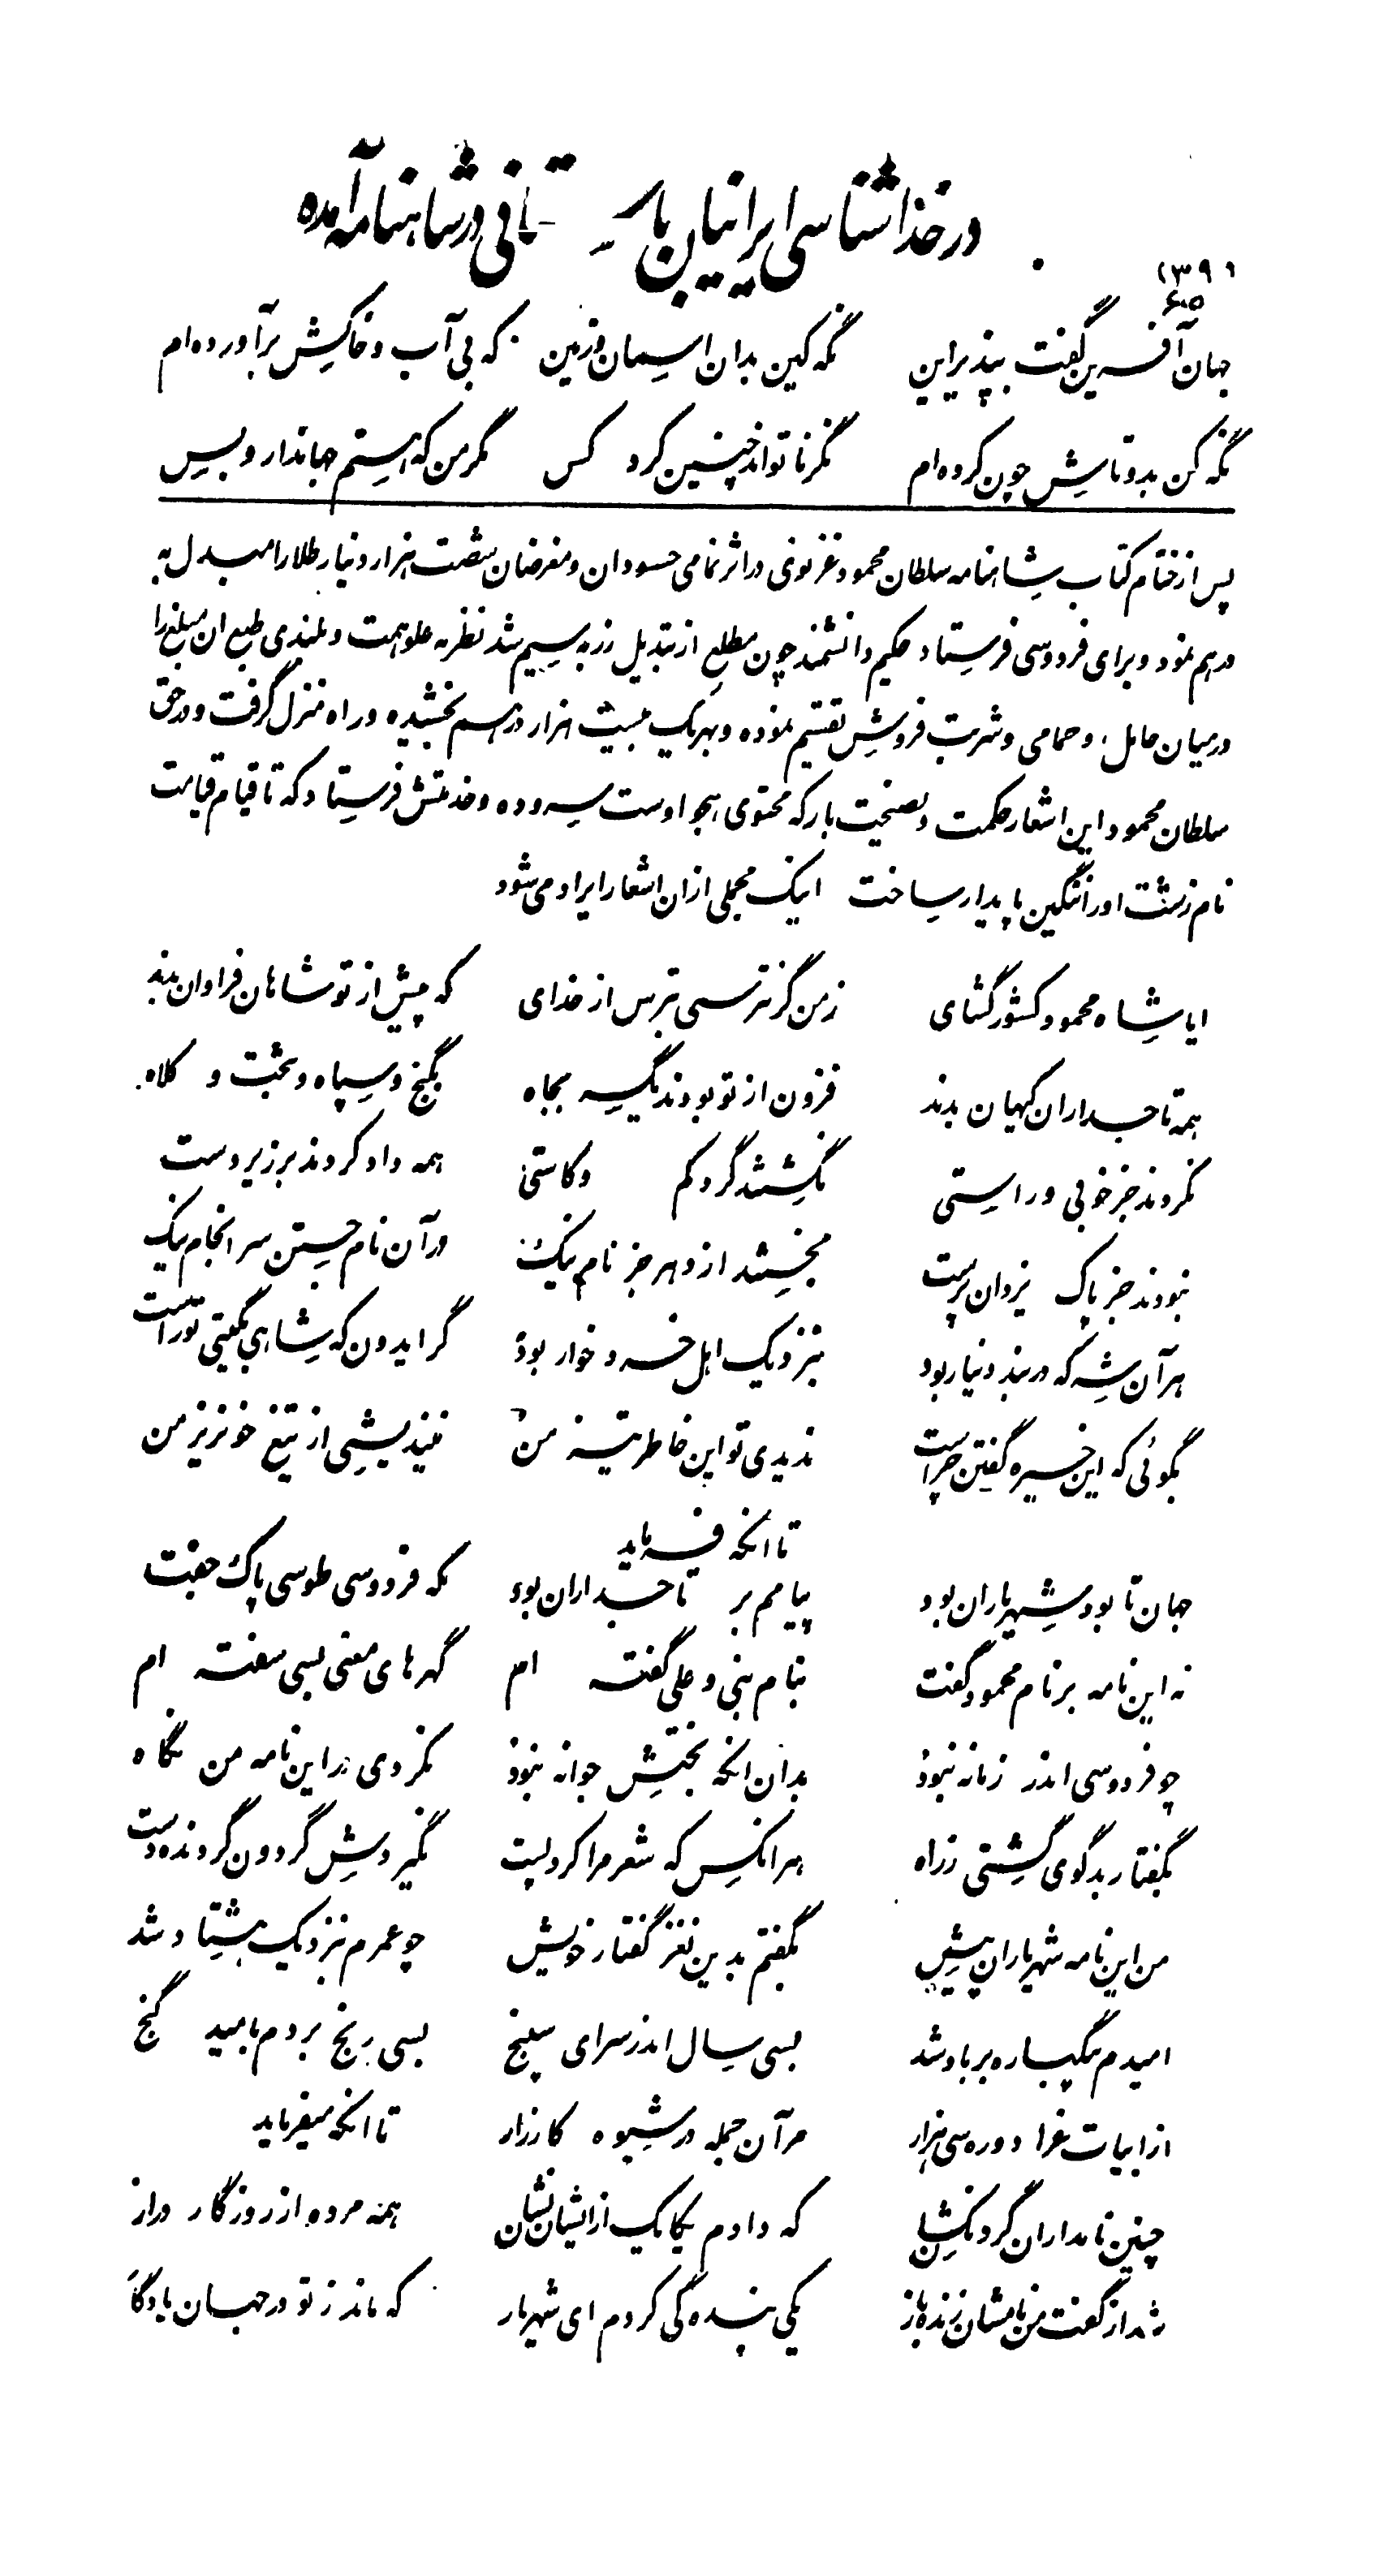 در خداشناسی ایرانیان باستانی در شاهنامه آمده
۱۳۹۱
جهان آفرین گفت بپذیر این نگه کین بدان آسمان و زمین که بی آب و خاکش برآورده‌ام
نگه کن بدو تاش چون کرده‌ام نگر نا تواند چنین کرد کس مگر من که هستم جهاندار و بس
پس از ختام کتاب شاهنامه سلطان محمود غزنوی در اثر نمامی حسودان و مغرضان شصت هزار دینار طلا را مبدل به
درهم نمود و برای فردوسی فرستاد حکیم دانشمند چون مطلع از تبدیل زر به سیم شد نظر به علو همت و بلندی طبع ان مبلغ را
در میان حامل، و حمامی و شربت فروش تقسیم نموده و بهریک بیست هزار درهم بخشیده و راه منزل گرفت و در حق
سلطان محمود این اشعار حکمت و نصیحت بار که محتوی هجو اوست سروده و خدمتش فرستاد که تا قیام قیامت
نام زشت او را ننگین پایدار ساخت اینک مجملی از ان اشعار ایراد می شود
ایا شاه محمود کشور گشای ز من گر نترسی بترس از خدای که پیش از تو شاهان فراوان بدند
همه تاجداران کیهان بدند فزون از تو بودند یکسر بجاه بگنج و سپاه و تخت و کلاه
نکردند جز خوبی و راستی نگشتند گرد کم و کاستی همه داد کردند بر زیر دست
نبودند جز پاک یزدان پرست نجستند از دهر جز نام نیک در آن نام جستن سر انجام نیک
هر آن شه که در بند دینار بود بنزدیک اهل خرد خوار بود گر ایدون که شاهی بگیتی تو راست
بگوئی که این خیره گفتن چراست ندیدی تو این خاطر تیز من نیندیشی از تیغ خونریز من
تا انکه فرماید
جهان تا بود شهریاران بود پیامم بر تاجداران بود که فردوسی طوسی پاک جفت
نه این نامه بر نام محمود گفت بنام نبی و علی گفته ام گهرهای معنی بسی سفته ام
چو فردوسی اندر زمانه نبود بدان انکه بختش جوانه نبود نکردی در این نامه من نگاه
بگفتار بدگوی گشتی ز راه هر انکس که شعر مرا کرد پست نگیردش گردون گردنده دست
من این نامه شهریاران پیش بگفتم بدین نغز گفتار خویش چو عمرم بنزدیک هشتاد شد
امیدم بیکباره بر باد شد بسی سال اندر سرای سپنج بسی رنج بردم بامید گنج
از ابیات غرا دوره سی هزار مر آن جمله در شیوه کارزار تا انکه میفرماید
چنین نامداران گردنکشان که دادم یکایک از ایشان نشان همه مرده از روزگار دراز
شد از گفت من نامشان زنده باز یکی بنده گی کردم ای شهریار که ماند ز تو در جهان یادگار